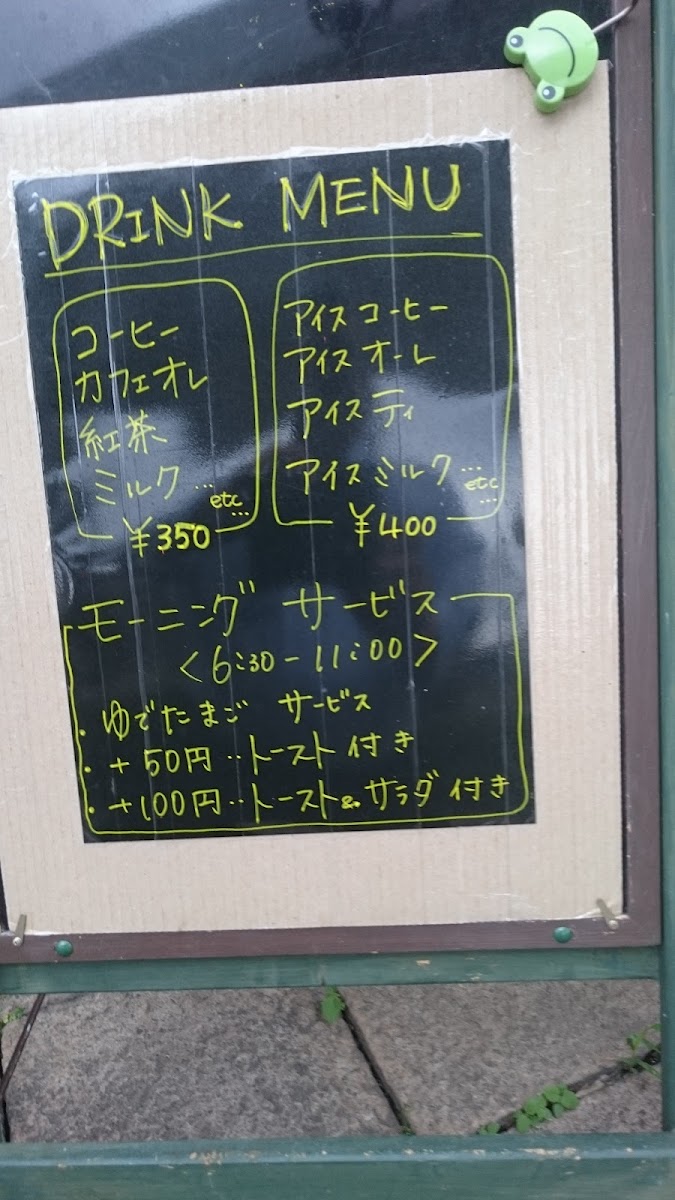 DRINK MENU
コーヒー
カフェオレ
紅茶
ミルク …
etc
…
¥350
アイスコーヒー
アイスオーレ
アイスティ
アイスミルク …
etc
…
¥400
モーニング サービス
<6:30-11:00>
・ゆでたまご サービス
・+50円‥トースト付き
・+100円‥トースト&サラダ付き